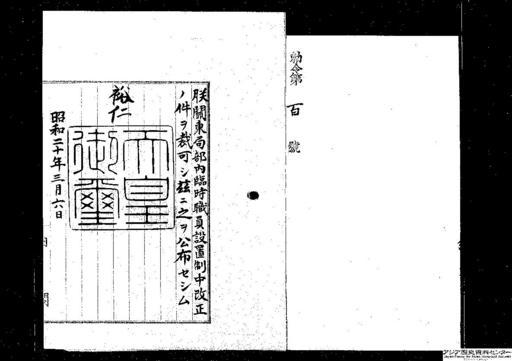 勅令第百號
朕關東局部內臨時職員設置制中改正
ノ件ヲ裁可シ茲ニ之ヲ公布セシム
裕仁
天皇御璽
昭和二十年三月六日
アジア歴史資料センター